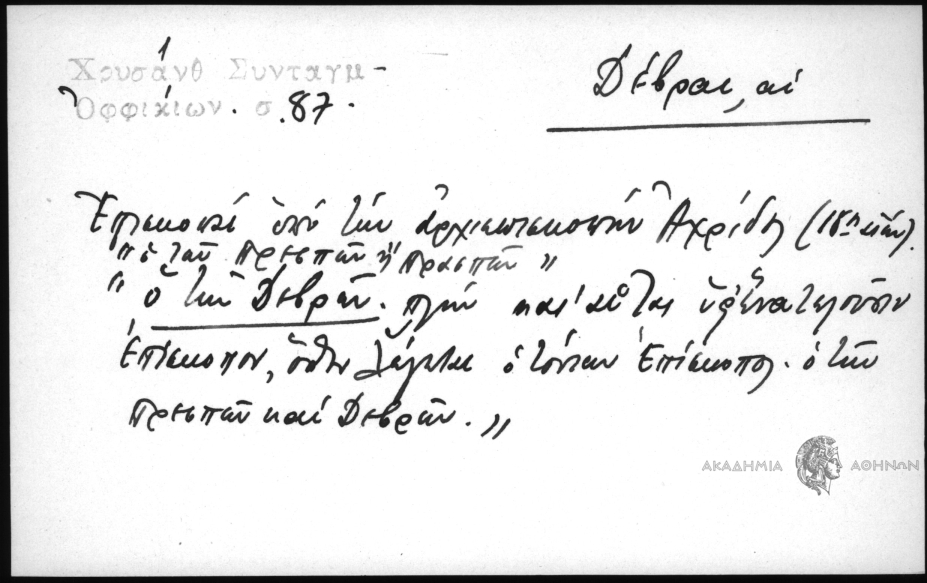 Χρυσάνθ Συνταγμ-
Ὀφφικίων. σ. 87.
Δέβραι, αἱ
Ἐπισκοπὲ ὑπὸ τὴν ἀρχιεπισκοπὴν Ἀχρίδος (18ος αἰών).
"ὁ τῶν Πρεσπῶν ἢ Πρασπῶν"
"ὁ τῶν Δεβρῶν. πλὴν καὶ αὗται ὑφ' ἕνα τελοῦσιν
ἐπίσκοπον, ὅθεν λέγεται ὁ τούτων Ἐπίσκοπος. ὁ τῶν
Πρεσπῶν καὶ Δεβρῶν."
ΑΚΑΔΗΜΙΑ ΑΘΗΝΩΝ